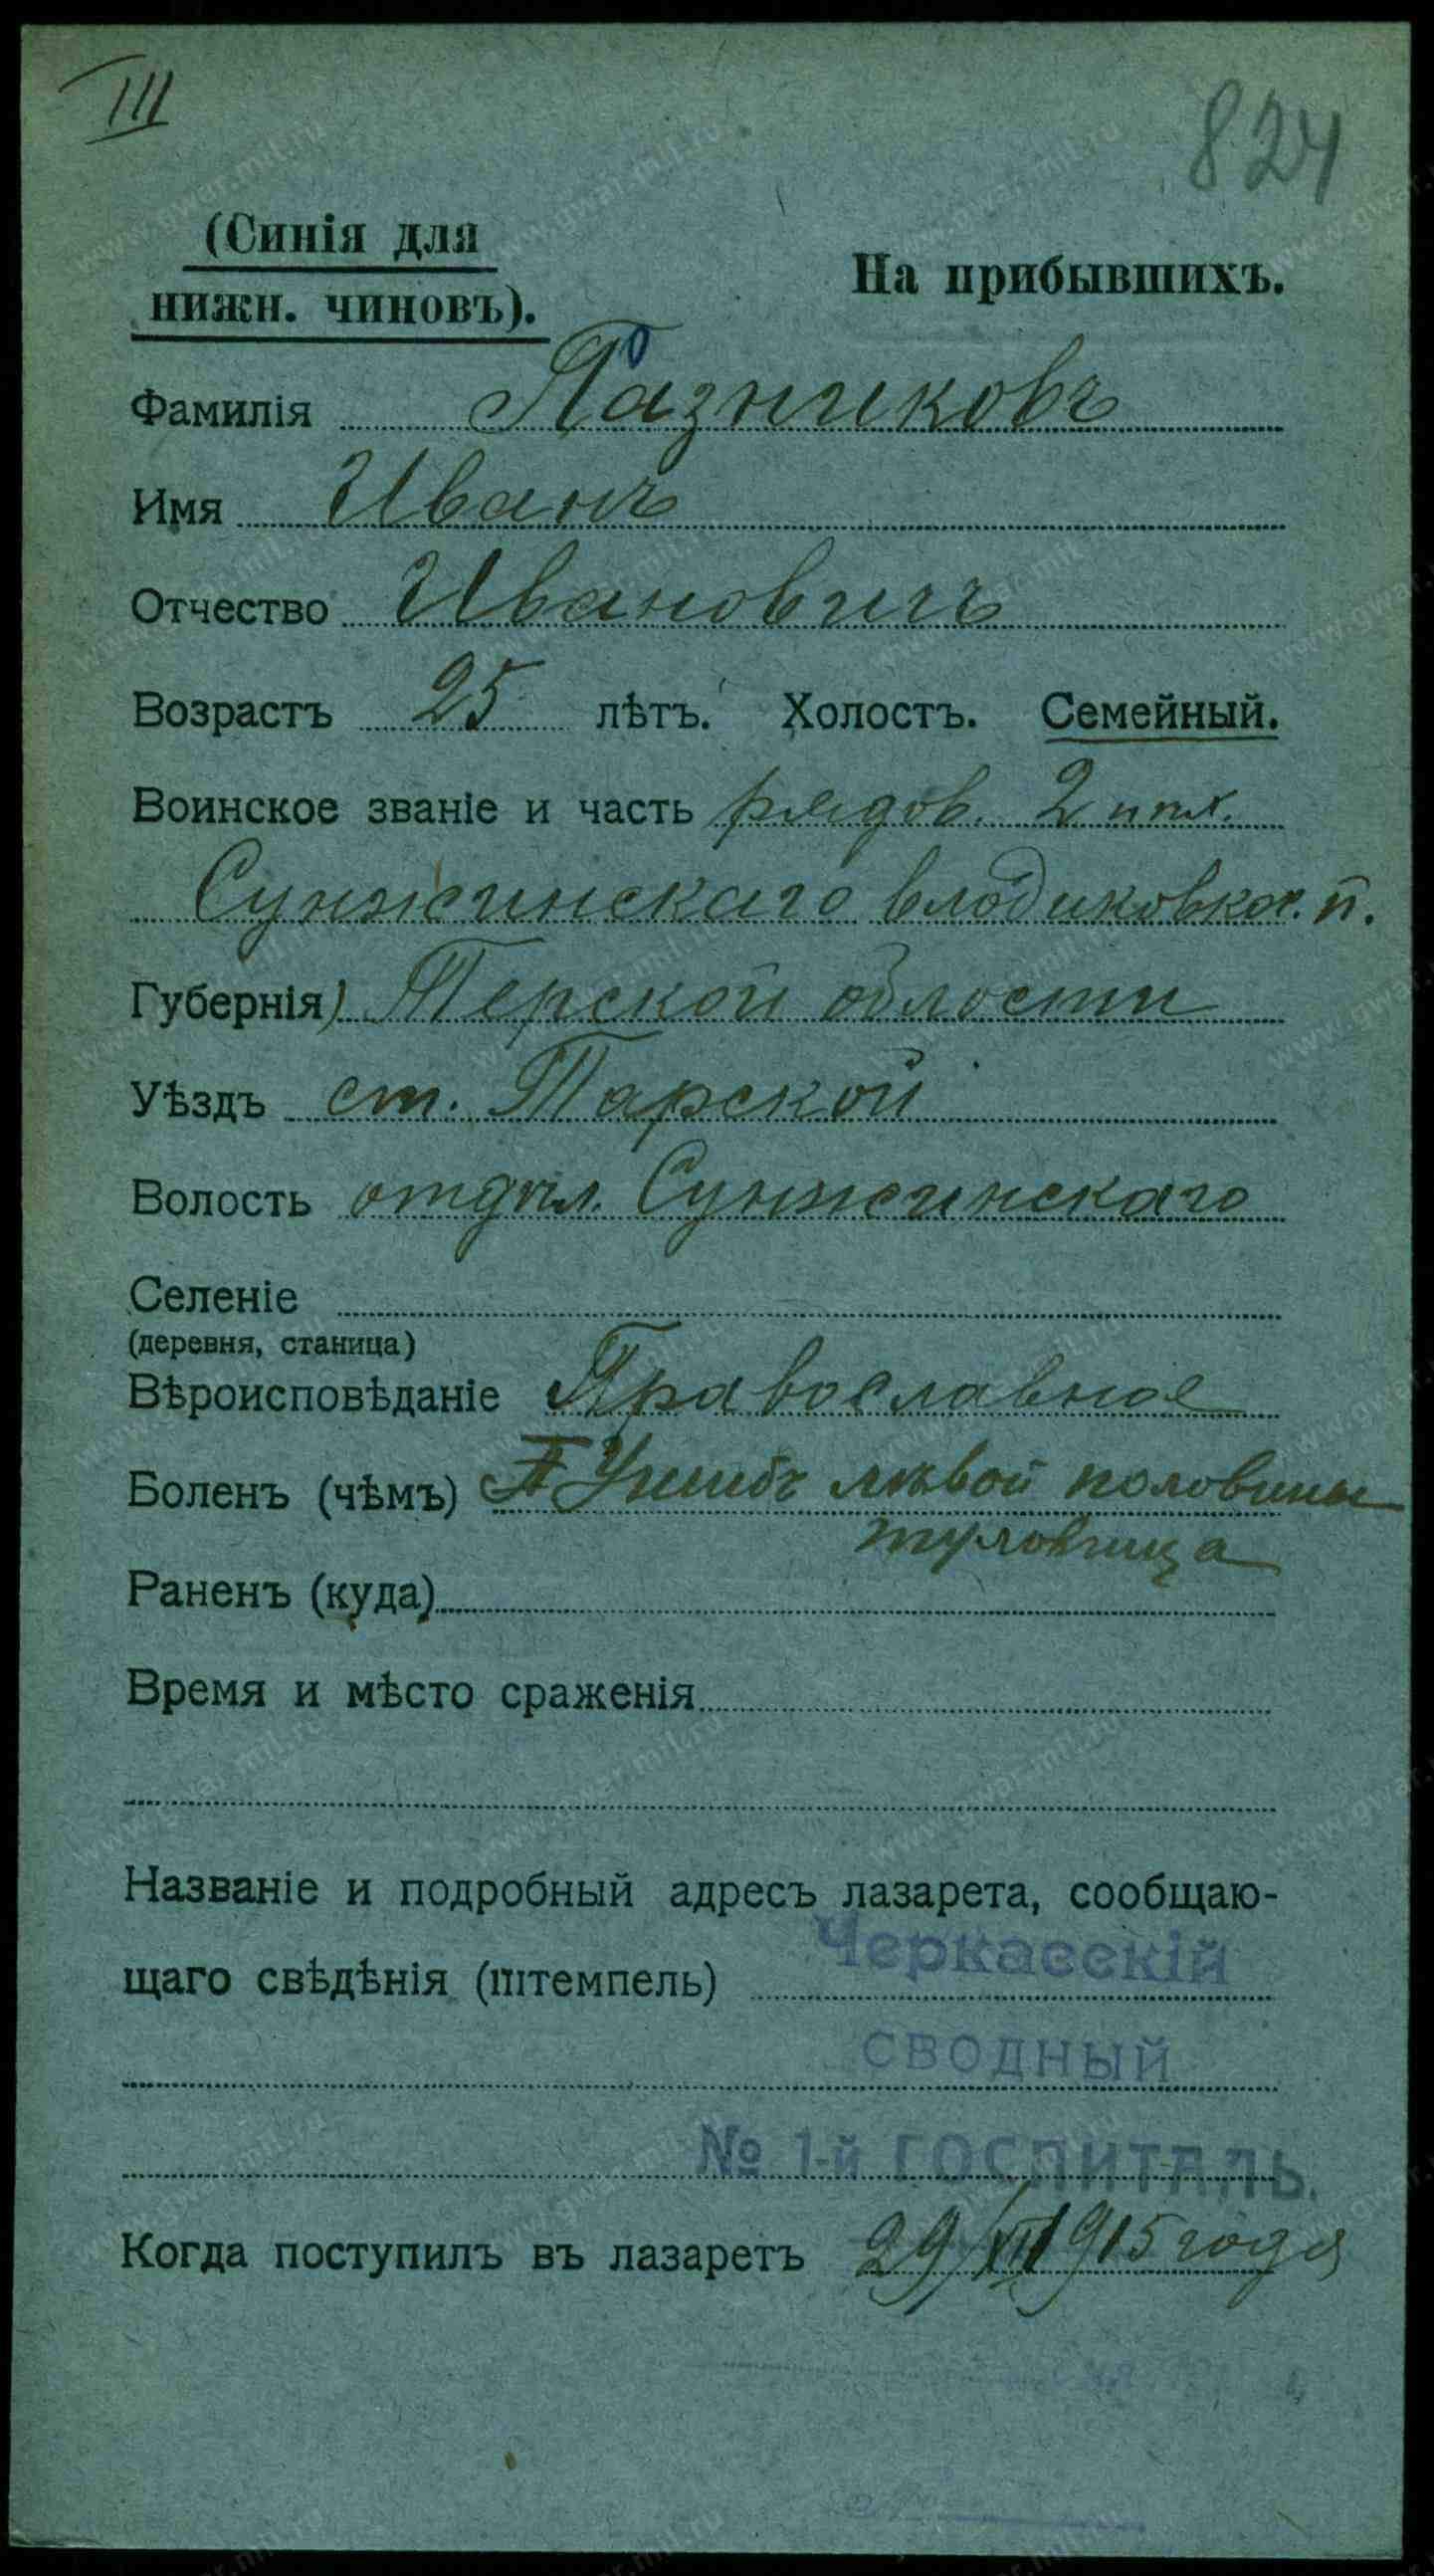 III
824
(Синія для
нижн. чиновъ).
На прибывшихъ.
Фамилія Пазниковъ
Имя Иванъ
Отчество Ивановичъ
Возрастъ 25 лѣтъ. Холостъ. Семейный.
Воинское званіе и часть рядов. 2
Сунженскаго владикавказ. п.
Губернія) Терской области
Уѣздъ ст. Тарской
Волость отдѣл. Сунженскаго
Селеніе
(деревня, станица)
Вѣроисповѣданіе Православное
Боленъ (чѣмъ) Ушибъ лѣвой половины
туловища
Раненъ (куда)
Время и мѣсто сраженія
Названіе и подробный адресъ лазарета, сообщаю-
щаго свѣдѣнія (штемпель) Черкасскій
СВОДНЫЙ
№ 1-й ГОСПИТАЛЬ.
Когда поступилъ въ лазаретъ 29/VII 1915 года
www.gwar.mil.ru